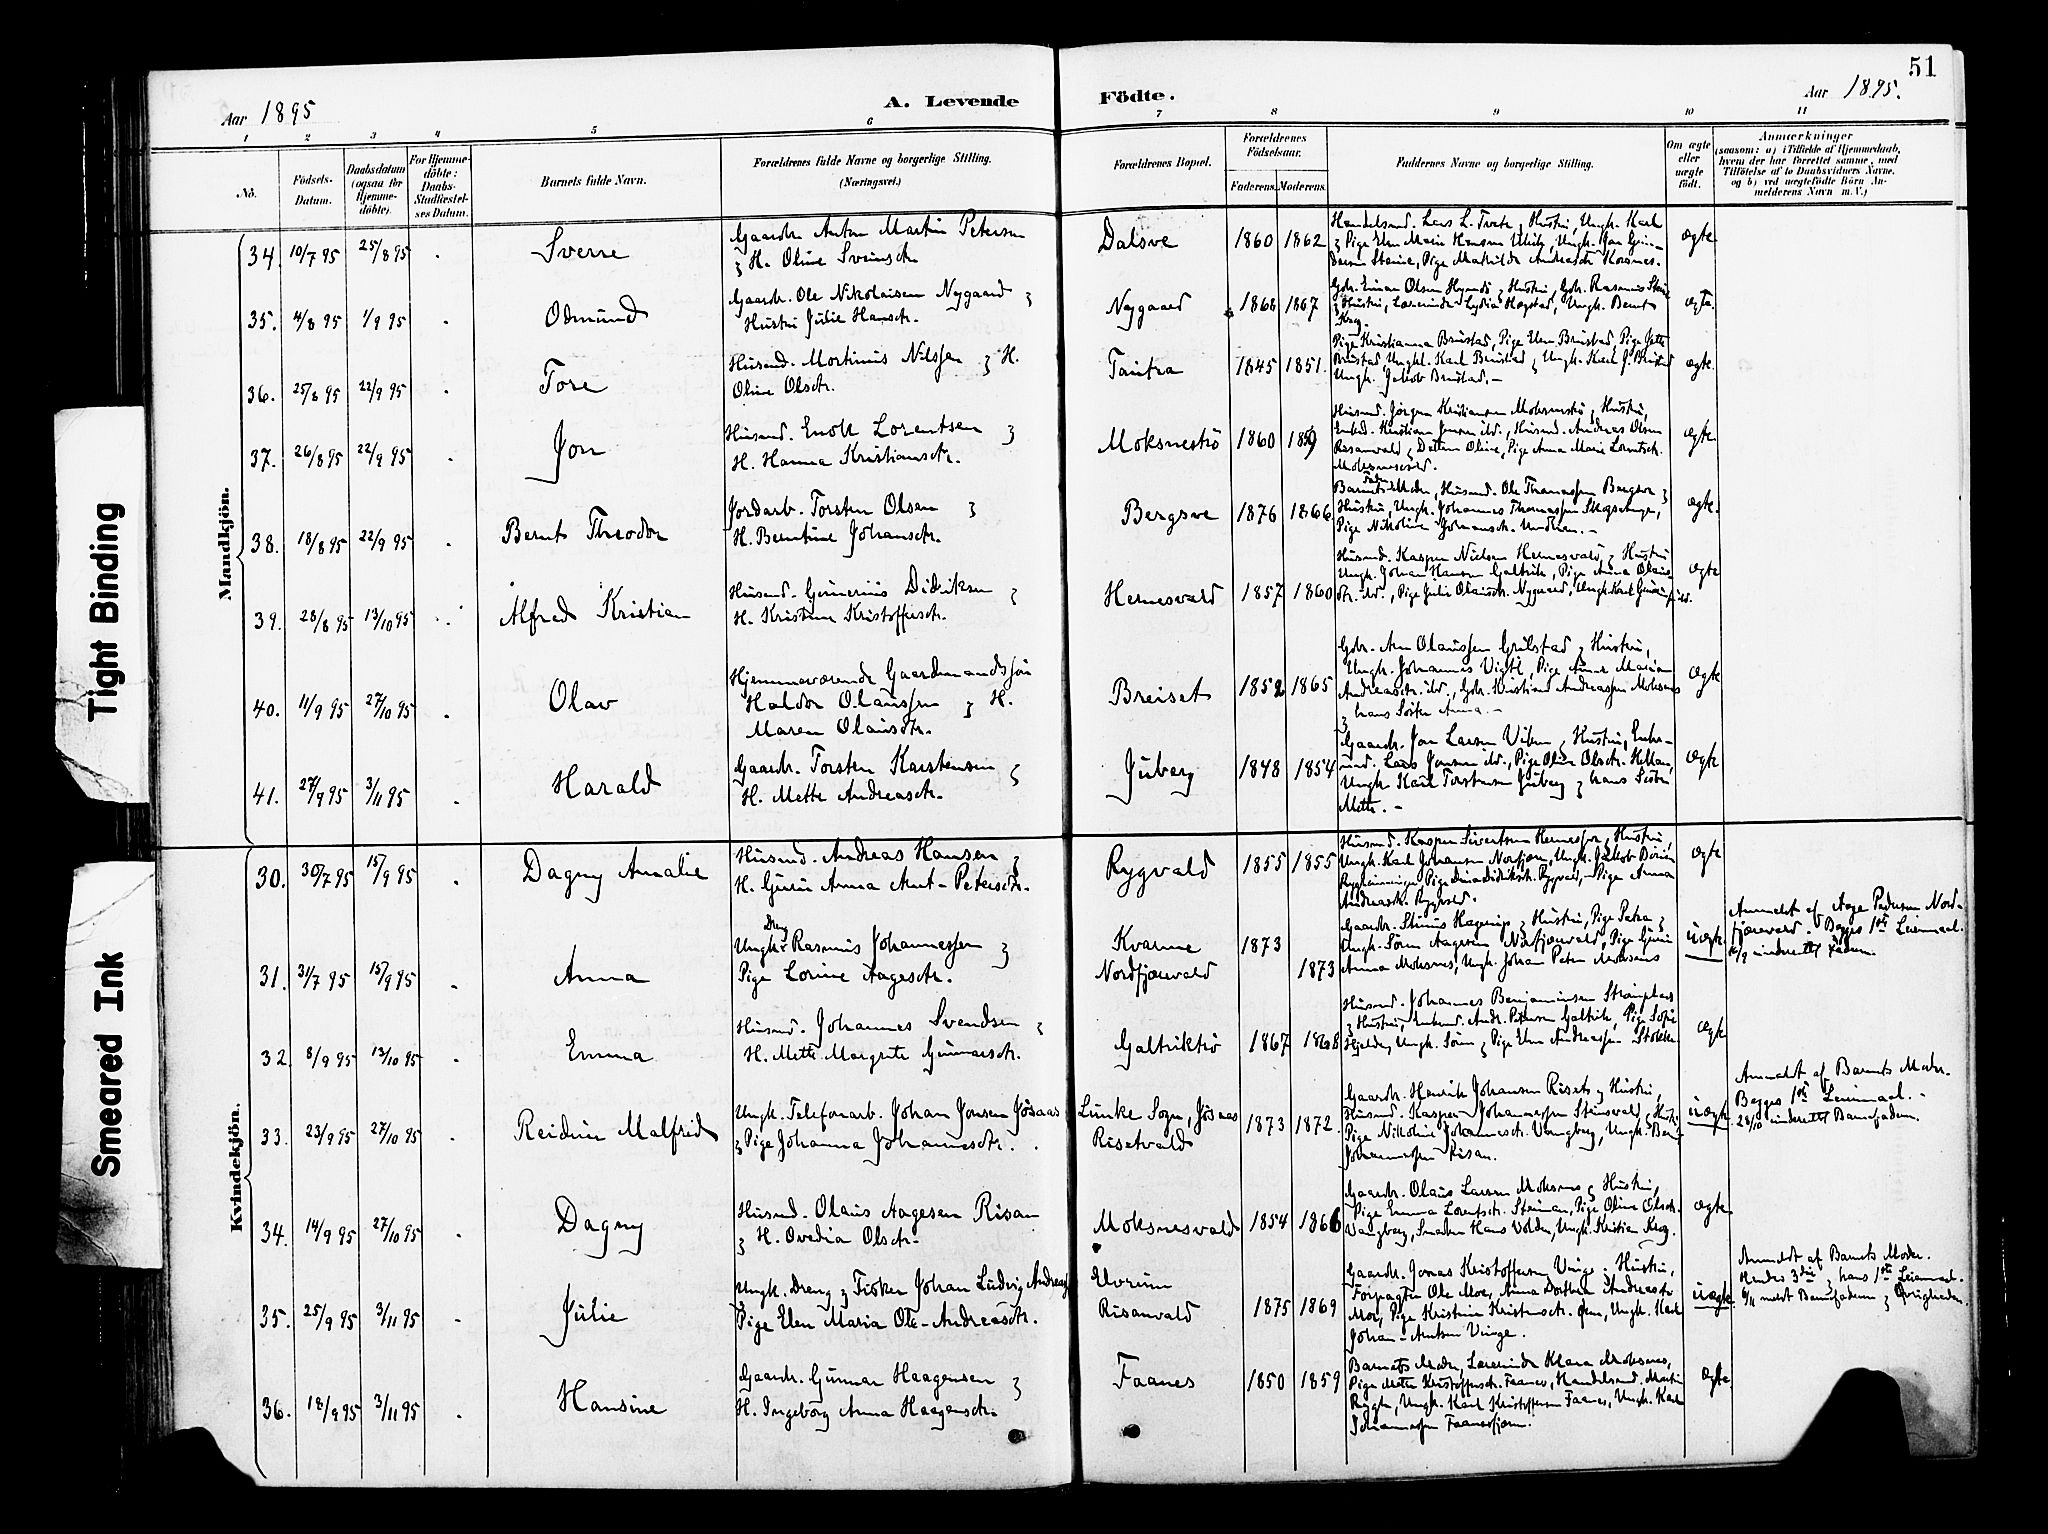 51
Aar 1895
A. Levende
Födte.
Aar 1895.
1 2 3 4 5 6 7 8 9 10 11
No.
Födsels-
Datum.
Daabsdatum
(ogsaa for
Hjemme-
döbte).
For Hjemme-
döbte:
Daabs-
Stadfæstel-
ses Datum.
Barnets fulde Navn.
Forældrenes fulde Navne og borgerlige Stilling.
(Næringsvei.)
Forældrenes Bopæl.
Forældrenes
Födselsaar.
Faderens.
Moderens.
Faddernes Navne og borgerlige Stilling.
Om ægte
eller
uægte
födt.
Anmærkninger
(saasom: a) i Tilfælde af Hjemmedaab,
hvem der har forrettet samme, med
Tilföielse af to Daabsvidners Navne,
og b) ved uægtefödte Börn An-
melderens Navn m. V.)
Mandkjön.
34. 10/7 95 25/8 95 Sverre
Gaardr. Anton Martin Petersen
& H. Oline Sveinsdtr.
Dalsve 1860 1862
Handelsmd. Lars L. Tvete & Hustru, Ungk. Karl
ægte
35. 4/8 95 1/9 95 Odmund
Gaardr. Ole Nikolaisen Nygaard &
Hustru Julie Hansdtr.
Nygaard 1868 1867
& Hustru, Lærerinde Lydia Hogstad, Ungk. Bernt
ægte.
36. 25/8 95 22/9 95 Tore
Husmd. Mortinus Nilssen & H.
Oline Olsdtr.
Tautra 1845 1851.
Pige Kristianna Brustad, Pige Elen Brustad, Pige Jette
Brustad, Ungk. Karl Brustad & Ungk. Karl J. Brustad
Ungk. Jakob Brustad.-
ægte.
37. 26/8 95 22/9 95 Jon
Husmd. Enok Lorentsen &
H. Hanna Kristiansdtr.
Moksneströ 1860 1859
Husmd. Jörgen Kristiansen Moksneströ & Hustru,
Enkd. Kristian Jensen ibd., Husmd. Andreas Olsen
Risanvald & Datter Oline, Pige Anna Marie Lorentsdtr.
Moksnesvald.
ægte.
38. 18/8 95 22/9 95 Bernt Theodor
Jordarb. Torsten Olsen &
H. Berntine Johansdtr.
Bergsve 1876 1866
Barnets Fader, Husmd. Ole Thomassen Bergsve &
Hustru, Ungk. Johannes Thomassen
Pige Nikoline Johansdtr.
ægte.
39. 28/8 95 13/10 95 Alfred Kristian
Husmd. Gunerius Didriksen &
H. Kristine Kristoffersdtr.
Hernesvald 1857 1860
Husmd. Kasper Nielsen Hernesvald & Hustru
Ungk. Johan Hansen Galtvik, Pige Anna Olaus-
dtr. ibd., Pige Julie Olausdtr. Nygaard, Ungk. Karl
ægte
40. 11/9 95 27/10 95 Olav
Hjemmeværende Gaardmandssön
Haldor Olaussen & H.
Maren Olausdtr.
Breiset 1852 1865
Gdr. Arn Olaussen Grilstad & Hustru,
Ungk. Johannes Vigtl, Pige Anna Marian
Andreasdtr. ibd., Gdr. Kristian Andreassen Moksnes
& hans Söster Anna.-
ægte
41. 27/9 95 3/11 95 Harald
Gaardr. Torsten Karstensen &
H. Mette Andreasdtr.
Juberg 1848 1854
Gaardr. Jon Larsen Viken & Hustru, Enke-
md. Lars Jonsen ibd., Pige Oline Olsdtr.
Ungk. Karl Torstensen Juberg & hans Söster
Mette.-
ægte
Kvindekjön.
30. 30/7 95 15/9 95 Dagny Amalie
Husmd. Andreas Hansen &
H. Gurin Anna Arnt-Petersdtr.
Rygvald 1855 1855
Husmd. Kasper Sivertsen & Hustru,
Ungk. Karl Johansen
Andreasdtr. Rygvald.
ægte
31. 31/7 95 15/9 95 Anna
Dreng
Ungk. Rasmus Johannessen &
Pige Lorine Aagesdtr.
Kvamme
Nordfjærvald
1873
1873
& Hustru, Pige Petra &
Ungk. Sören Aagesen Nordfjærvald, Pige Gurin
Anna Moksnes, Ungk. Johan Peter Moksnes
uægte
Anmeldt af Aage Pedersen Nord-
fjærvald. Begges 1ste Leiermaal.
16/9 underrettet Faderen.
32. 8/9 95 13/10 95 Emma
Husmd. Johannes Svendsen &
H. Mette Margrete Gunnarsdtr.
Galtviktrö 1867 1868
Husmd. Johannes Benjaminsen
& Hustru, Enkemd. Andr. Petersen Galtvik, Pige Sofie
Hjelde, Ungk. Sören & Pige Elen Andreassen Stokke
ægte
33. 23/9 95 27/10 95 Reidun Malfrid
Ungk. Telefonarb. Johan Jonsen Jösaas
& Pige Johanna Johannesdtr.
Lunke Sogn, Jösaas
Risetvald
1873 1872.
Gaardr. Henrik Johansen Riset & Hustru,
Husmd. Kasper Johannessen Steinsvald & Hustru
Pige Nikoline Johannesdtr. Vangberg, Ungk. Bernt
Johannessen Risan.
uægte.
Anmeldt af Barnets Moder.
Begges 1ste Leiermaal.-
28/10 underrettet Barnefaderen.
34. 14/9 95 27/10 95 Dagny
Husmd. Olaus Aagesen Risan
& H. Ovedia Olsdtr.
Moksnesvald 1854 1866
Gaardr. Olaus Larsen Moksnes & Hustru,
Pige Emma Lorentsdtr. Pige Oline Olsdtr.
Vangberg, Smeden Hans Volden, Ungk. Kristian Krog.
ægte
35. 25/9 95 3/11 95 Julie
Ungk. Dreng & Fisker Johan Ludvig Andreas
Pige Elen Maria Ole-Andreasdtr.
Utvrum
Risanvald
1875 1869
Gaardr. Jonas Kristoffersen Vinge & Hustru,
Forpagter Ole Moe, Anna Dorthea Andreasdtr.
Moe, Pige Kristine Ungk. Karl
Johan-Arntsen Vinge.
uægte
Anmeldt af Barnets Moder.
Hendes 3die & hans 1ste Leiermaal.
6/11 meldt Barnefaderen & Övrigheden.
36. 18/9 95 3/11 95 Hansine
Gaardr. Gunnar Haagensen &
H. Ingeborg Anna Haagensdtr.
Faanes 1850 1859
Barnets Moder, Lærerinde Klara Moksnes,
Pige Mette Kristoffersdtr. Faanes, Handelsmd. Martin
Rygh, Ungk. Karl Kristoffersen Faanes, Ungk. Karl
Johannessen Faanesfjæren.
ægte
Tight Binding
Smeared Ink